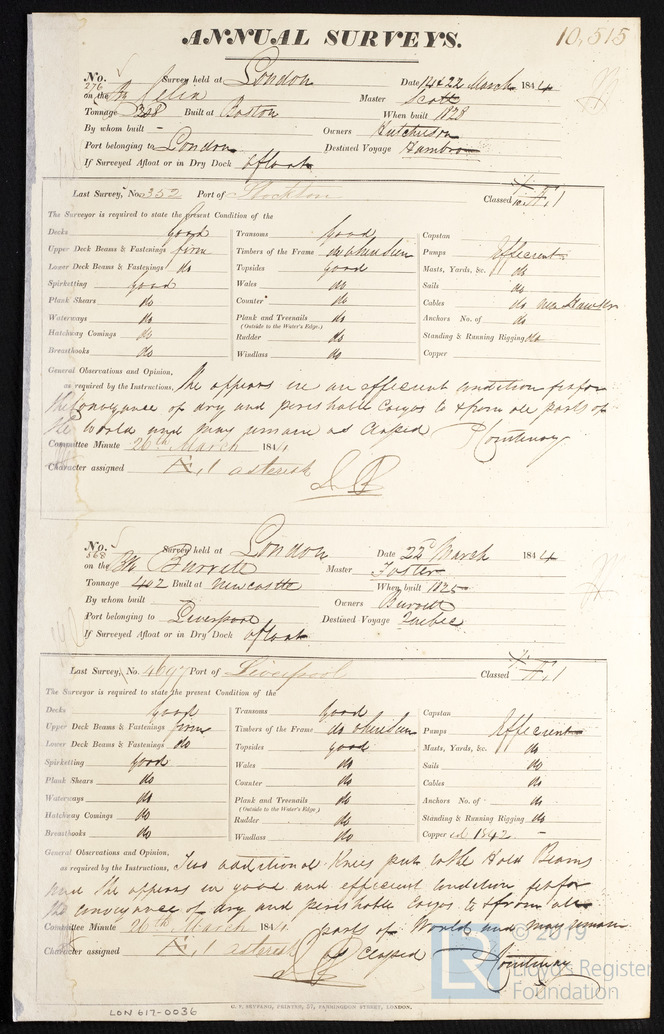 ANNUAL SURVEYS. 10,515
No. 276 Survey held at London Date 22 March 1844
on the Celia Master Scott
Tonnage 328 Built at Boston When built 1828
By whom built - Owners Hutchinson
Port belonging to London Destined Voyage Hambro
If Surveyed Afloat or in Dry Dock afloat
Last Survey, No. 352 Port of Stockton Classed Æ, 1
The Surveyor is required to state the present Condition of the
Decks good Transoms good Capstan
Upper Deck Beams & Fastenings firm Timbers of the Frame do when seen Pumps Efficient
Lower Deck Beams & Fastenings do Topsides good Masts, Yards, &c. do
Spirketting good Wales do Sails do
Plank Shears do Counter do Cables do new Hawser
Waterways do Plank and Treenails do Anchors No. of do
(Outside to the Water's Edge.)
Hatchway Comings do Rudder do Standing & Running Rigging do
Breasthooks do Windlass do Copper
General Observations and Opinion,
as required by the Instructions, She appears in an efficient condition fit for
the conveyance of dry and perishable Cargos to & from all parts of
the World and may remain as classed Courtenay
Committee Minute 26th March 1844
Character assigned Æ, 1 asterisk
No. 568 Survey held at London Date 22nd March 1844
on the Burrell Master Foster
Tonnage 402 Built at Newcastle When built 1825
By whom built Owners Burrell
Port belonging to Liverpool Destined Voyage Quebec
If Surveyed Afloat or in Dry Dock afloat
Last Survey, No. 4697 Port of Liverpool Classed Æ, 1
The Surveyor is required to state the present Condition of the
Decks good Transoms good Capstan
Upper Deck Beams & Fastenings firm Timbers of the Frame do when seen Pumps Efficient
Lower Deck Beams & Fastenings do Topsides good Masts, Yards, &c. do
Spirketting good Wales do Sails do
Plank Shears do Counter do Cables do
Waterways do Plank and Treenails do Anchors No. of do
(Outside to the Water's Edge.)
Hatchway Comings do Rudder do Standing & Running Rigging do
Breasthooks do Windlass do Copper ed 1842 -
General Observations and Opinion,
as required by the Instructions, Two additional Knees put to the Hold Beams
and She appears in good and efficient Condition fit for
the conveyance of dry and perishable Cargos to & from all
Committee Minute 26th March 1844 parts of World and may remain
Character assigned Æ, 1 asterisk as classed Courtenay
LR © 2019
Lloyd's Register
Foundation
C. F. SEYFANG, PRINTER, 57, FARRINGDON STREET, LONDON.
LON 617-0036